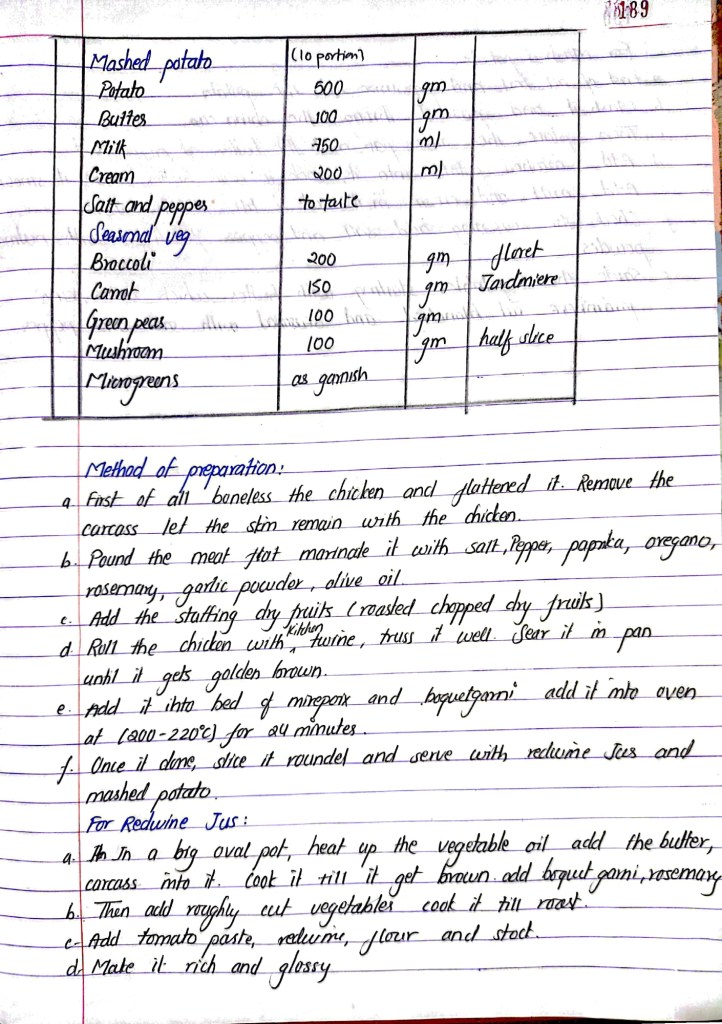 189
Mashed potato (10 portion)
Potato 500 gm
Butter 100 gm
Milk 750 ml
Cream 200 ml
Salt and pepper to taste
Seasonal veg
Broccoli 200 gm floret
Carrot 150 gm Jardmiere
Green peas 100 gm
Mushroom 100 gm half slice
Microgreens as garnish
Method of preparation:
a. First of all boneless the chicken and flattened it. Remove the
carcass let the skin remain with the chicken.
b. Pound the meat flat marinate it with salt, Pepper, paprika, oregano,
rosemary, garlic powder, olive oil
c. Add the stuffing dry fruits (roasted chopped dry fruits)
d. Roll the chicken with kitchen twine, truss it well. Sear it in pan
until it gets golden brown.
e. Add it into bed of mirepoix and boquetgarni add it into oven
at (200-220°C) for 24 minutes.
f. Once it done, slice it roundel and serve with redwine Jus and
mashed potato.
For Redwine Jus:
a. In a big oval pot, heat up the vegetable oil add the butter,
carcass into it. Cook it till it get brown. add boquet garni, rosemary
b. Then add roughly cut vegetables cook it till roast.
c. Add tomato paste, redwine, flour and stock.
d. Make it rich and glossy